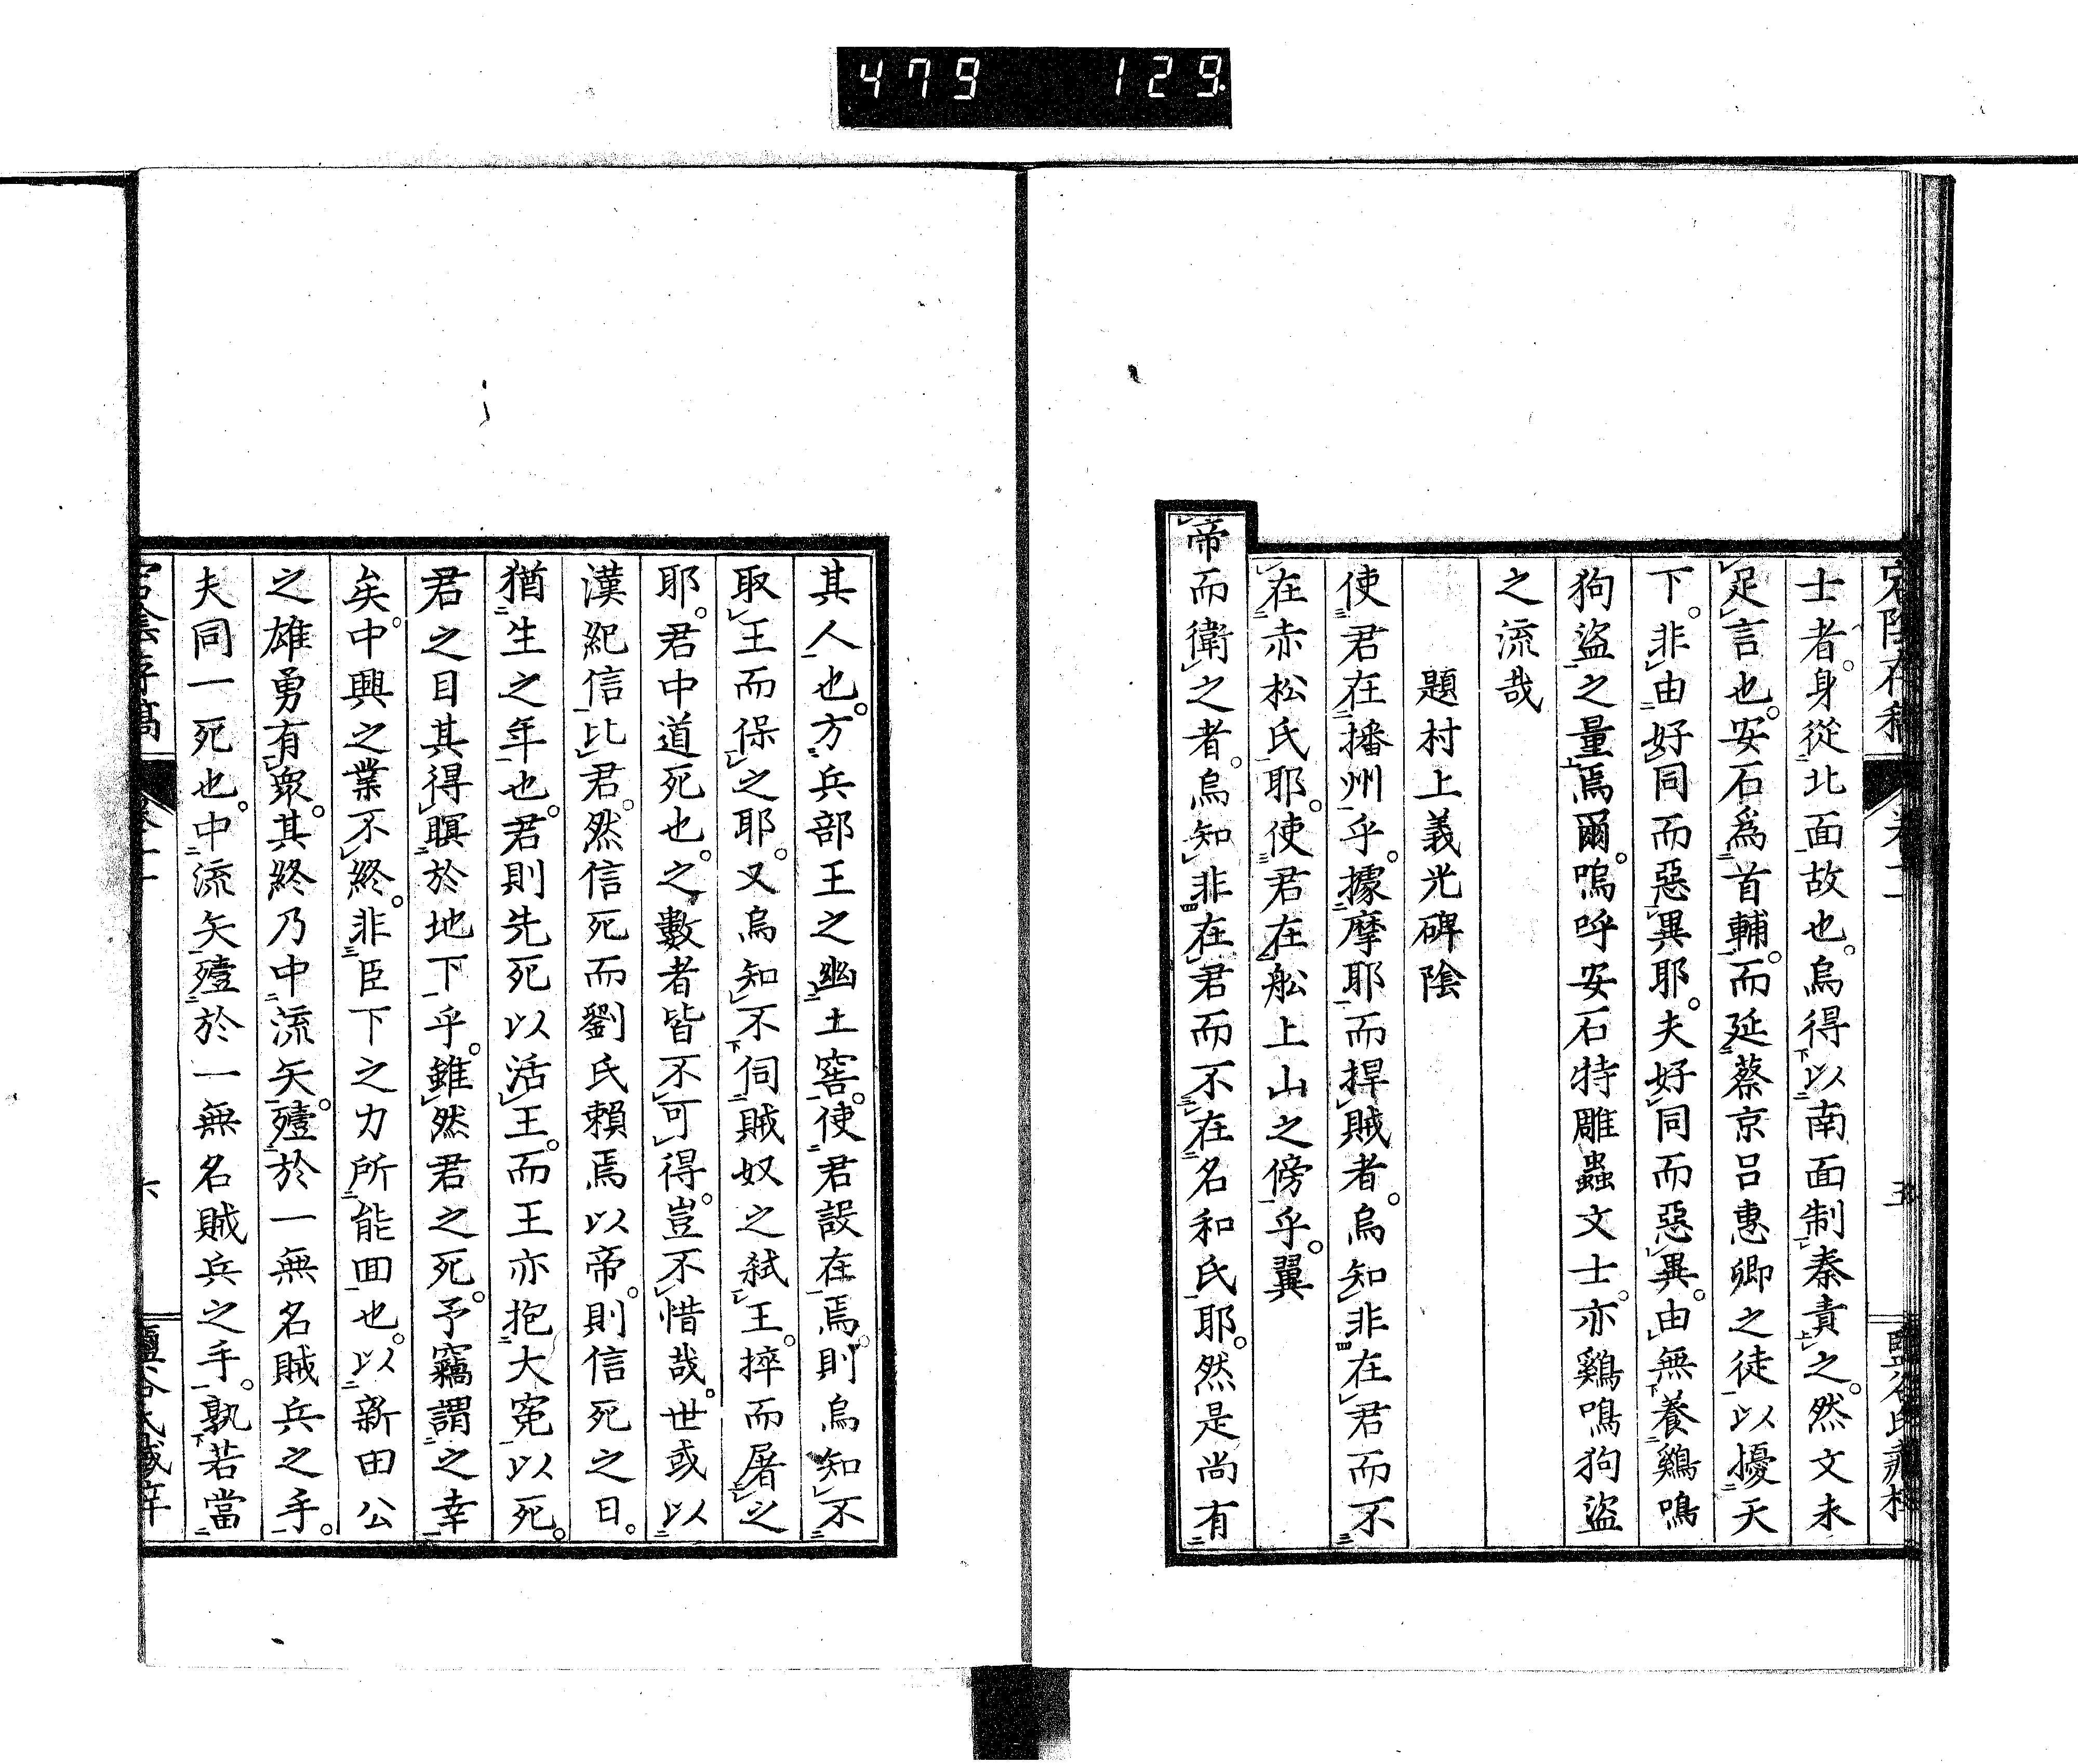 479 129
士者。身從北面故也。烏得以南面制秦責之。然文未
足言也。安石爲首輔。而延蔡京呂惠卿之徒以擾天
下。非由好同而惡異耶。夫好同而惡異。由無養鷄鳴
狗盜之量焉爾。嗚呼安石特雕蟲文士。亦鷄鳴狗盜
之流哉
題村上義光碑陰
使君在播州乎。據摩耶而捍賊者。烏知非在君而不
在赤松氏耶。使君在船上山之傍乎。翼
帝而衛之者。烏知非在君而不在名和氏耶。然是尚有
其人也。方兵部王之幽土窖。使君設在焉。則烏知不
取王而保之耶。又烏知不伺賊奴之弑王。捽而屠之
耶。君中道死也。之數者皆不可得。豈不惜哉。世或以
漢紀信比君。然信死而劉氏賴焉以帝。則信死之日。
猶生之年也。君則先死以活王。而王亦抱大冤以死。
君之目其得瞑於地下乎。雖然君之死。予竊謂之幸
矣。中興之業不終。非臣下之力所能回也。以新田公
之雄勇有衆。其終乃中流矢。殪於一無名賊兵之手。
夫同一死也。中流矢殪於一無名賊兵之手。孰若當